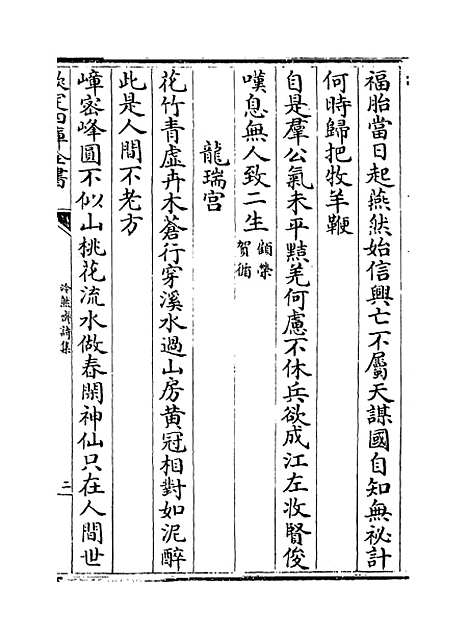 福胎當日起燕然始信興亡不屬天謀國自知無祕計
何時歸把牧羊鞭
自是羣公氣未平黠羌何慮不休兵欲成江左收賢俊
嘆息無人致二生顧榮
賀循
龍瑞宫
花竹青虛卉木蒼行穿溪水過山房黄冠相對如泥醉
此是人間不老方
嶂密峰圓不似山桃花流水做春闗神仙只在人間世
欽定四庫全書
冷然齋詩集
二